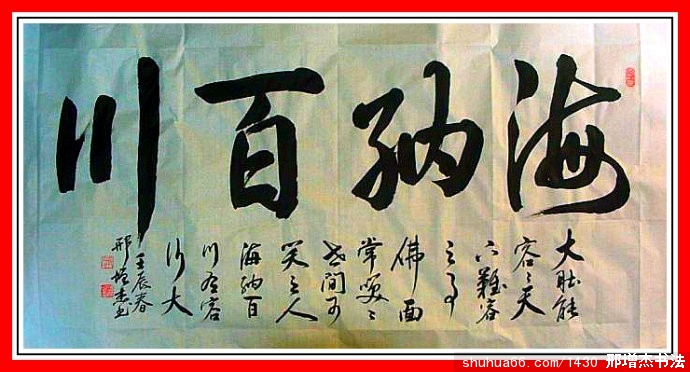 海纳百川
大肚能
容〻天
下難容
之事
佛面
常笑〻
世间可
笑之人
海纳百
川有容
乃大
壬辰春
邢增杰书
shuhua66.com/1430 邢增杰书法